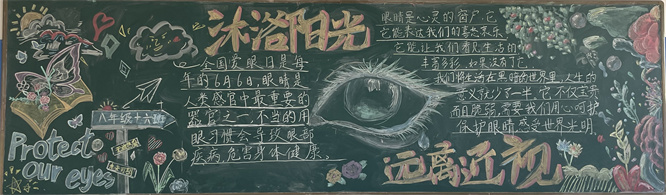 沐浴阳光
全国爱眼日是每
年的6月6日,眼睛是
人类感官中最重要的
器官之一,不当的用
眼习惯会导致眼部
疾病,危害身体健康。
八年级十六班
Protect
our eyes
眼睛是心灵的窗户,它
它能表达我们的喜怒哀乐
它能让我们看见生活的
丰富多彩,如果没有了它,
我们将生活在黑暗的世界里,人生的
意义就少了一半,它不仅宝贵
而且脆弱,需要我们用心呵护
保护眼睛,感受世界光明
远离近视